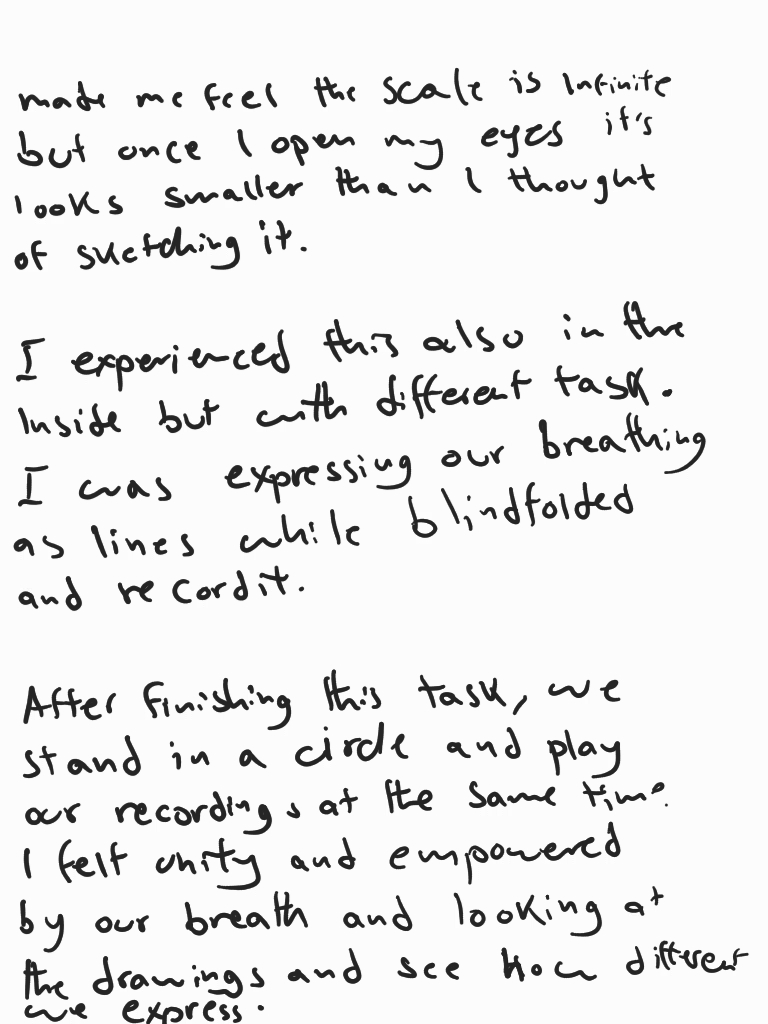 made me feel the scale is Infinite
but once I open my eyes it's
looks smaller than I thought
of sketching it.
I experienced this also in the
Inside but with different task.
I was expressing our breathing
as lines while blindfolded
and record it.
After finishing this task, we
stand in a circle and play
our recordings at the same time.
I felt unity and empowered
by our breath and looking at
the drawings and see how different
we express.